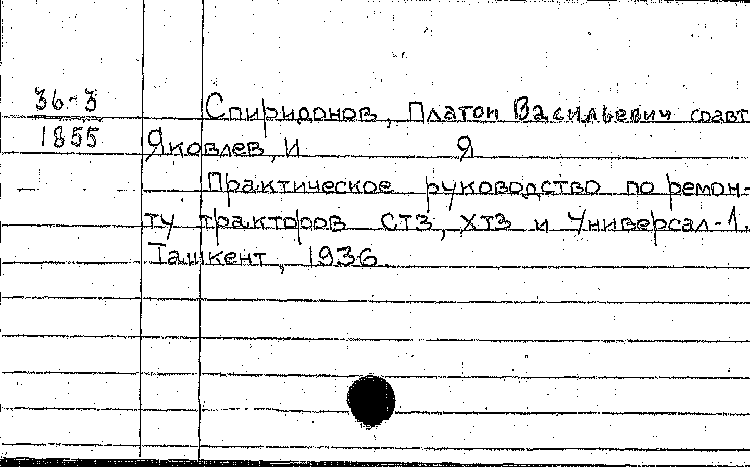 36-3
1855
Спиридонов, Платон Васильевич соавт
Яковлев, И Я
Практическое руководство по ремон-
ту тракторов СТЗ, ХТЗ и Универсал-1.
Ташкент, 1936